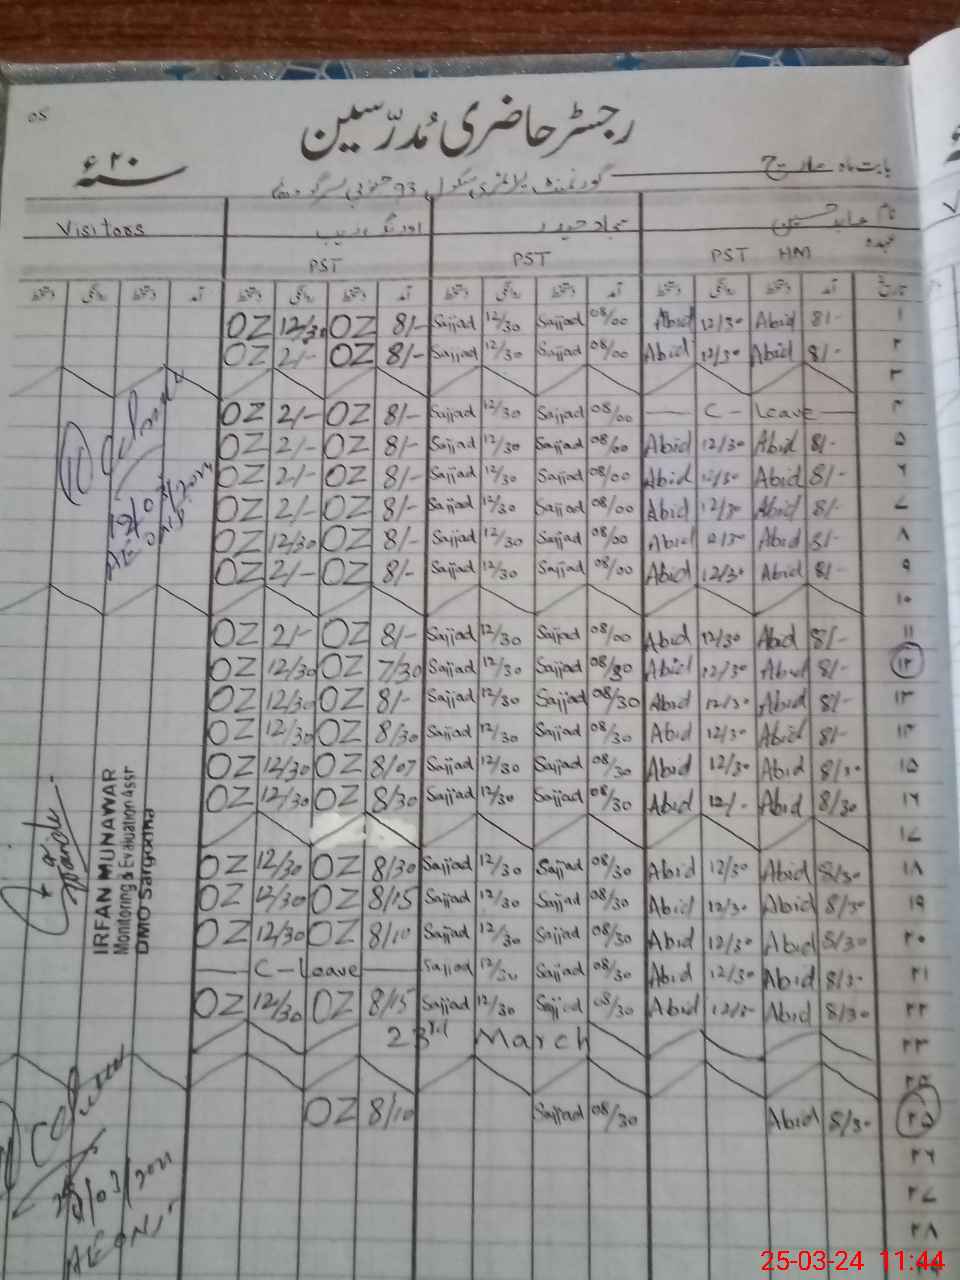 05
رجسٹر حاضری مُدرّسین
۲۰ء سنہ
بابت ماہ مارچ گورنمنٹ پرائمری سکول 93 جنوبی سرگودھا
نام عابد حسین سجاد حیدر اورنگ زیب Visitors
عہدہ PST HM PST PST
تاریخ آمد دستخط روانگی دستخط آمد دستخط روانگی دستخط آمد دستخط روانگی دستخط آمد دستخط روانگی دستخط
OZ 12/30 OZ 8/- Sajjad 12/30 Sajjad 08/00 Abid 12/30 Abid 8/- ۱
OZ 2/- OZ 8/- Sajjad 12/30 Sajjad 08/00 Abid 12/30 Abid 8/- ۲
۳
OZ 2/- OZ 8/- Sajjad 12/30 Sajjad 08/00 — C - Leave — ۴
OZ 2/- OZ 8/- Sajjad 12/30 Sajjad 08/00 Abid 12/30 Abid 8/- ۵
OZ 2/- OZ 8/- Sajjad 12/30 Sajjad 08/00 Abid 12/30 Abid 8/- ۶
OZ 2/- OZ 8/- Sajjad 12/30 Sajjad 08/00 Abid 12/30 Abid 8/- ۷
OZ 12/30 OZ 8/- Sajjad 12/30 Sajjad 08/00 Abid 12/30 Abid 8/- ۸
OZ 2/- OZ 8/- Sajjad 12/30 Sajjad 08/00 Abid 12/30 Abid 8/- ۹
۱۰
OZ 2/- OZ 8/- Sajjad 12/30 Sajjad 08/00 Abid 12/30 Abid 8/- ۱۱
OZ 12/30 OZ 7/30 Sajjad 12/30 Sajjad 08/30 Abid 12/30 Abid 8/- ۱۲
OZ 12/30 OZ 8/- Sajjad 12/30 Sajjad 08/30 Abid 12/30 Abid 8/- ۱۳
OZ 12/30 OZ 8/30 Sajjad 12/30 Sajjad 08/30 Abid 12/30 Abid 8/- ۱۴
OZ 12/30 OZ 8/07 Sajjad 12/30 Sajjad 08/30 Abid 12/30 Abid 8/30 ۱۵
OZ 12/30 OZ 8/30 Sajjad 12/30 Sajjad 08/30 Abid 12/- Abid 8/30 ۱۶
۱۷
OZ 12/30 OZ 8/30 Sajjad 12/30 Sajjad 08/30 Abid 12/30 Abid 8/30 ۱۸
OZ 12/30 OZ 8/15 Sajjad 12/30 Sajjad 08/30 Abid 12/30 Abid 8/30 ۱۹
OZ 12/30 OZ 8/10 Sajjad 12/30 Sajjad 08/30 Abid 12/30 Abid 8/30 ۲۰
— C - Leave — Sajjad 12/30 Sajjad 08/30 Abid 12/30 Abid 8/30 ۲۱
OZ 12/30 OZ 8/15 Sajjad 12/30 Sajjad 08/30 Abid 12/30 Abid 8/30 ۲۲
23rd March ۲۳
۲۴
OZ 8/10 Sajjad 08/30 Abid 8/30 ۲۵
۲۶
۲۷
۲۸
12/03/2024
IRFAN MUNAWAR
Monitoring & Evaluation Asst
DMO Sargodha
25/03/2024
25-03-24 11:44